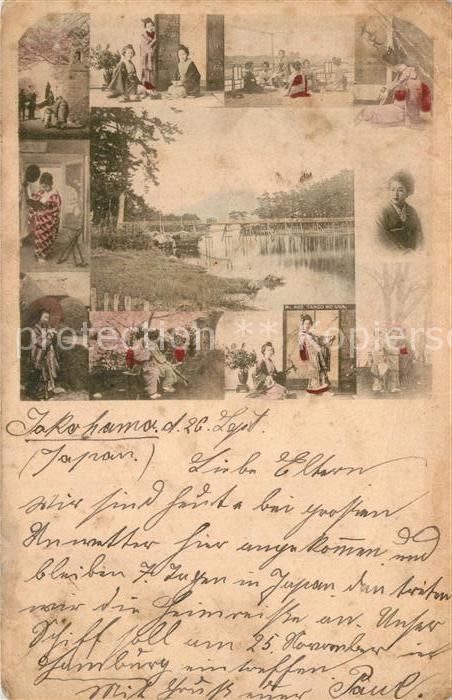 No. 405. TANGO NO URA.
Yokohama. d. 26. Sept.
(Japan.) Liebe Eltern
Wir sind heute bei großen
Unwetter hier angekommen und
bleiben 7 Tagen in Japan dan treten
wir die Heimreiße an. Unser
Schiff soll am 25. November in
Hamburg eintreffen
Mit Gruß euer Paul
protection ** Copiersch